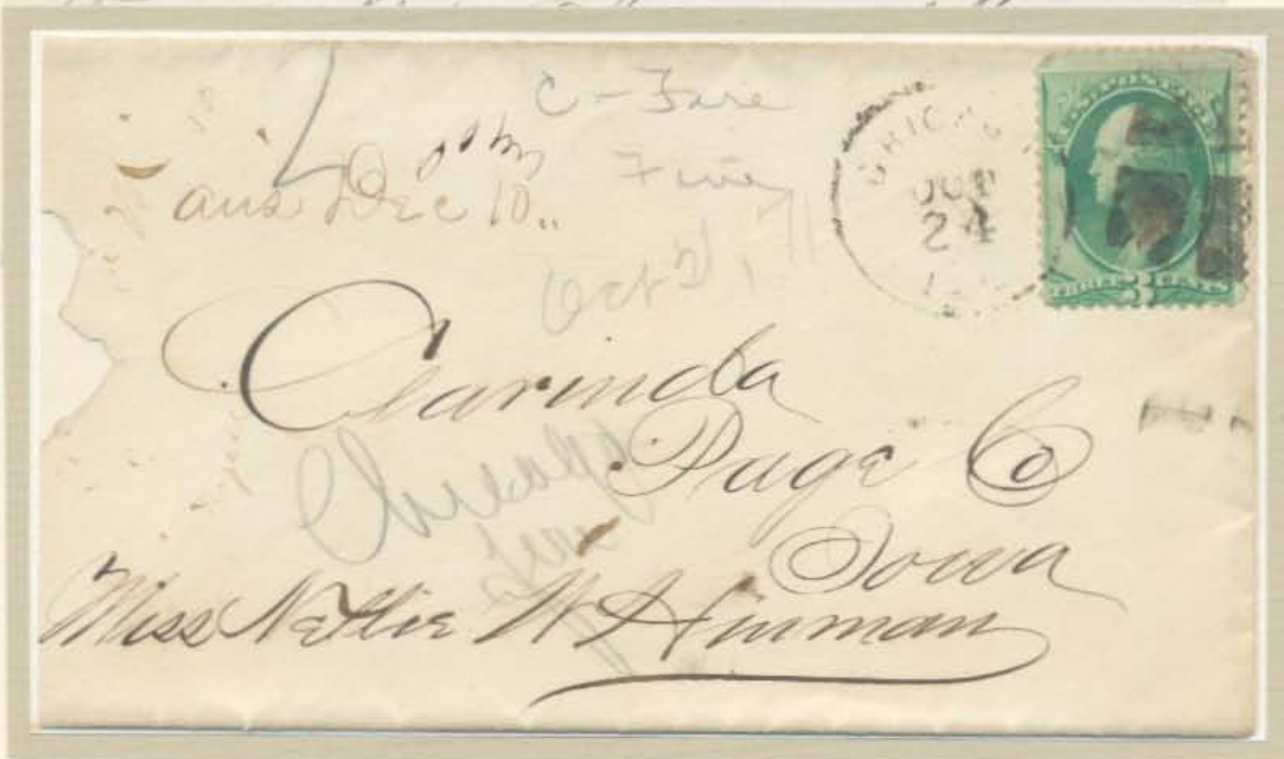 C - Fire
Fire
ans Dec 10..
Oct 21, 71
CHICAG
OCT
24
U.S. POSTAGE
THREE 3 CENTS
Clarinda
Page Co
Iowa
Chicago
Fire
Miss Nettie W Hinman